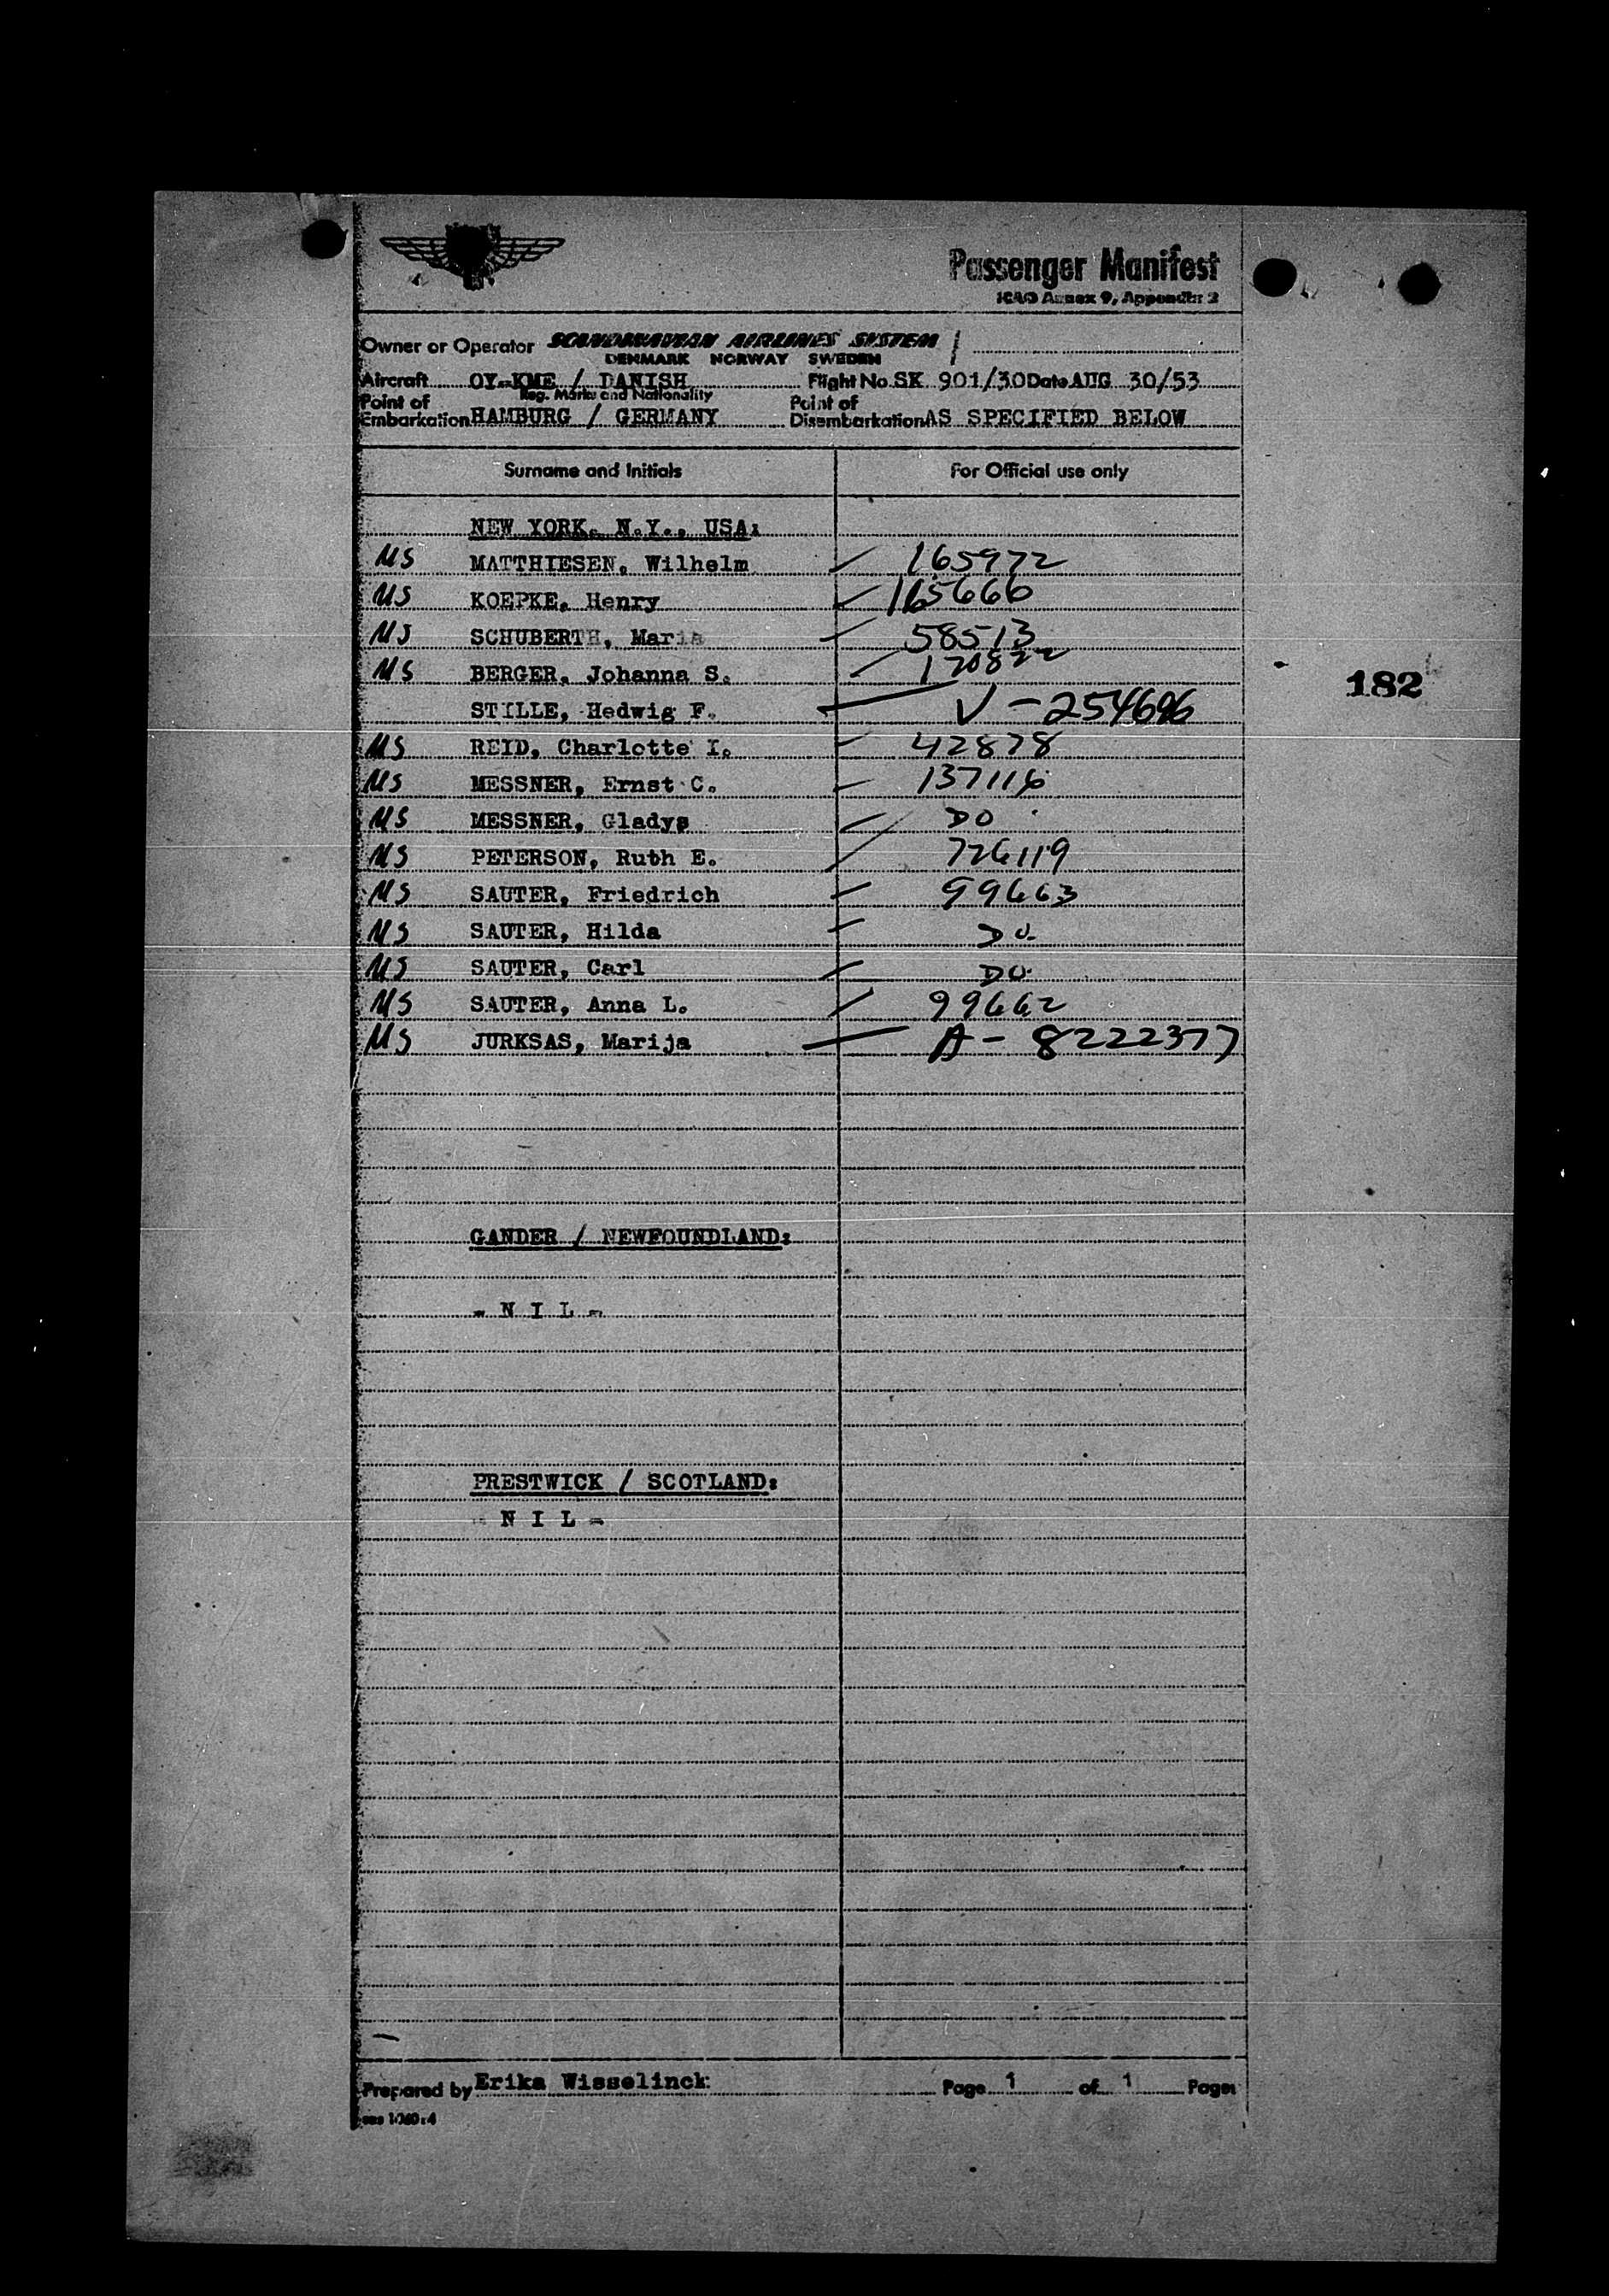 Passenger Manifest
ICAO Annex 9, Appendix 2
Owner or Operator SCANDINAVIAN AIRLINES SYSTEM
DENMARK NORWAY SWEDEN
Aircraft OY-KME / DANISH Flight No. SK 901/30 Date AUG 30/53
Reg. Marks and Nationality
Point of Embarkation HAMBURG / GERMANY Point of Disembarkation AS SPECIFIED BELOW
Surname and Initials For Official use only
NEW YORK, N.Y., USA:
US MATTHIESEN, Wilhelm 165972
US KOEPKE, Henry 165666
US SCHUBERTH, Maria 58513
US BERGER, Johanna S. 170822
STILLE, Hedwig F. V-254696
182
US REID, Charlotte I. 42878
US MESSNER, Ernst C. 137116
US MESSNER, Gladys DO
US PETERSON, Ruth E. 726119
US SAUTER, Friedrich 99663
US SAUTER, Hilda DO
US SAUTER, Carl DO
US SAUTER, Anna L. 99662
US JURKSAS, Marija A-8222377
GANDER / NEWFOUNDLAND:
- N I L -
PRESTWICK / SCOTLAND:
- N I L -
Prepared by Erika Wisselinck Page 1 of 1 Pages